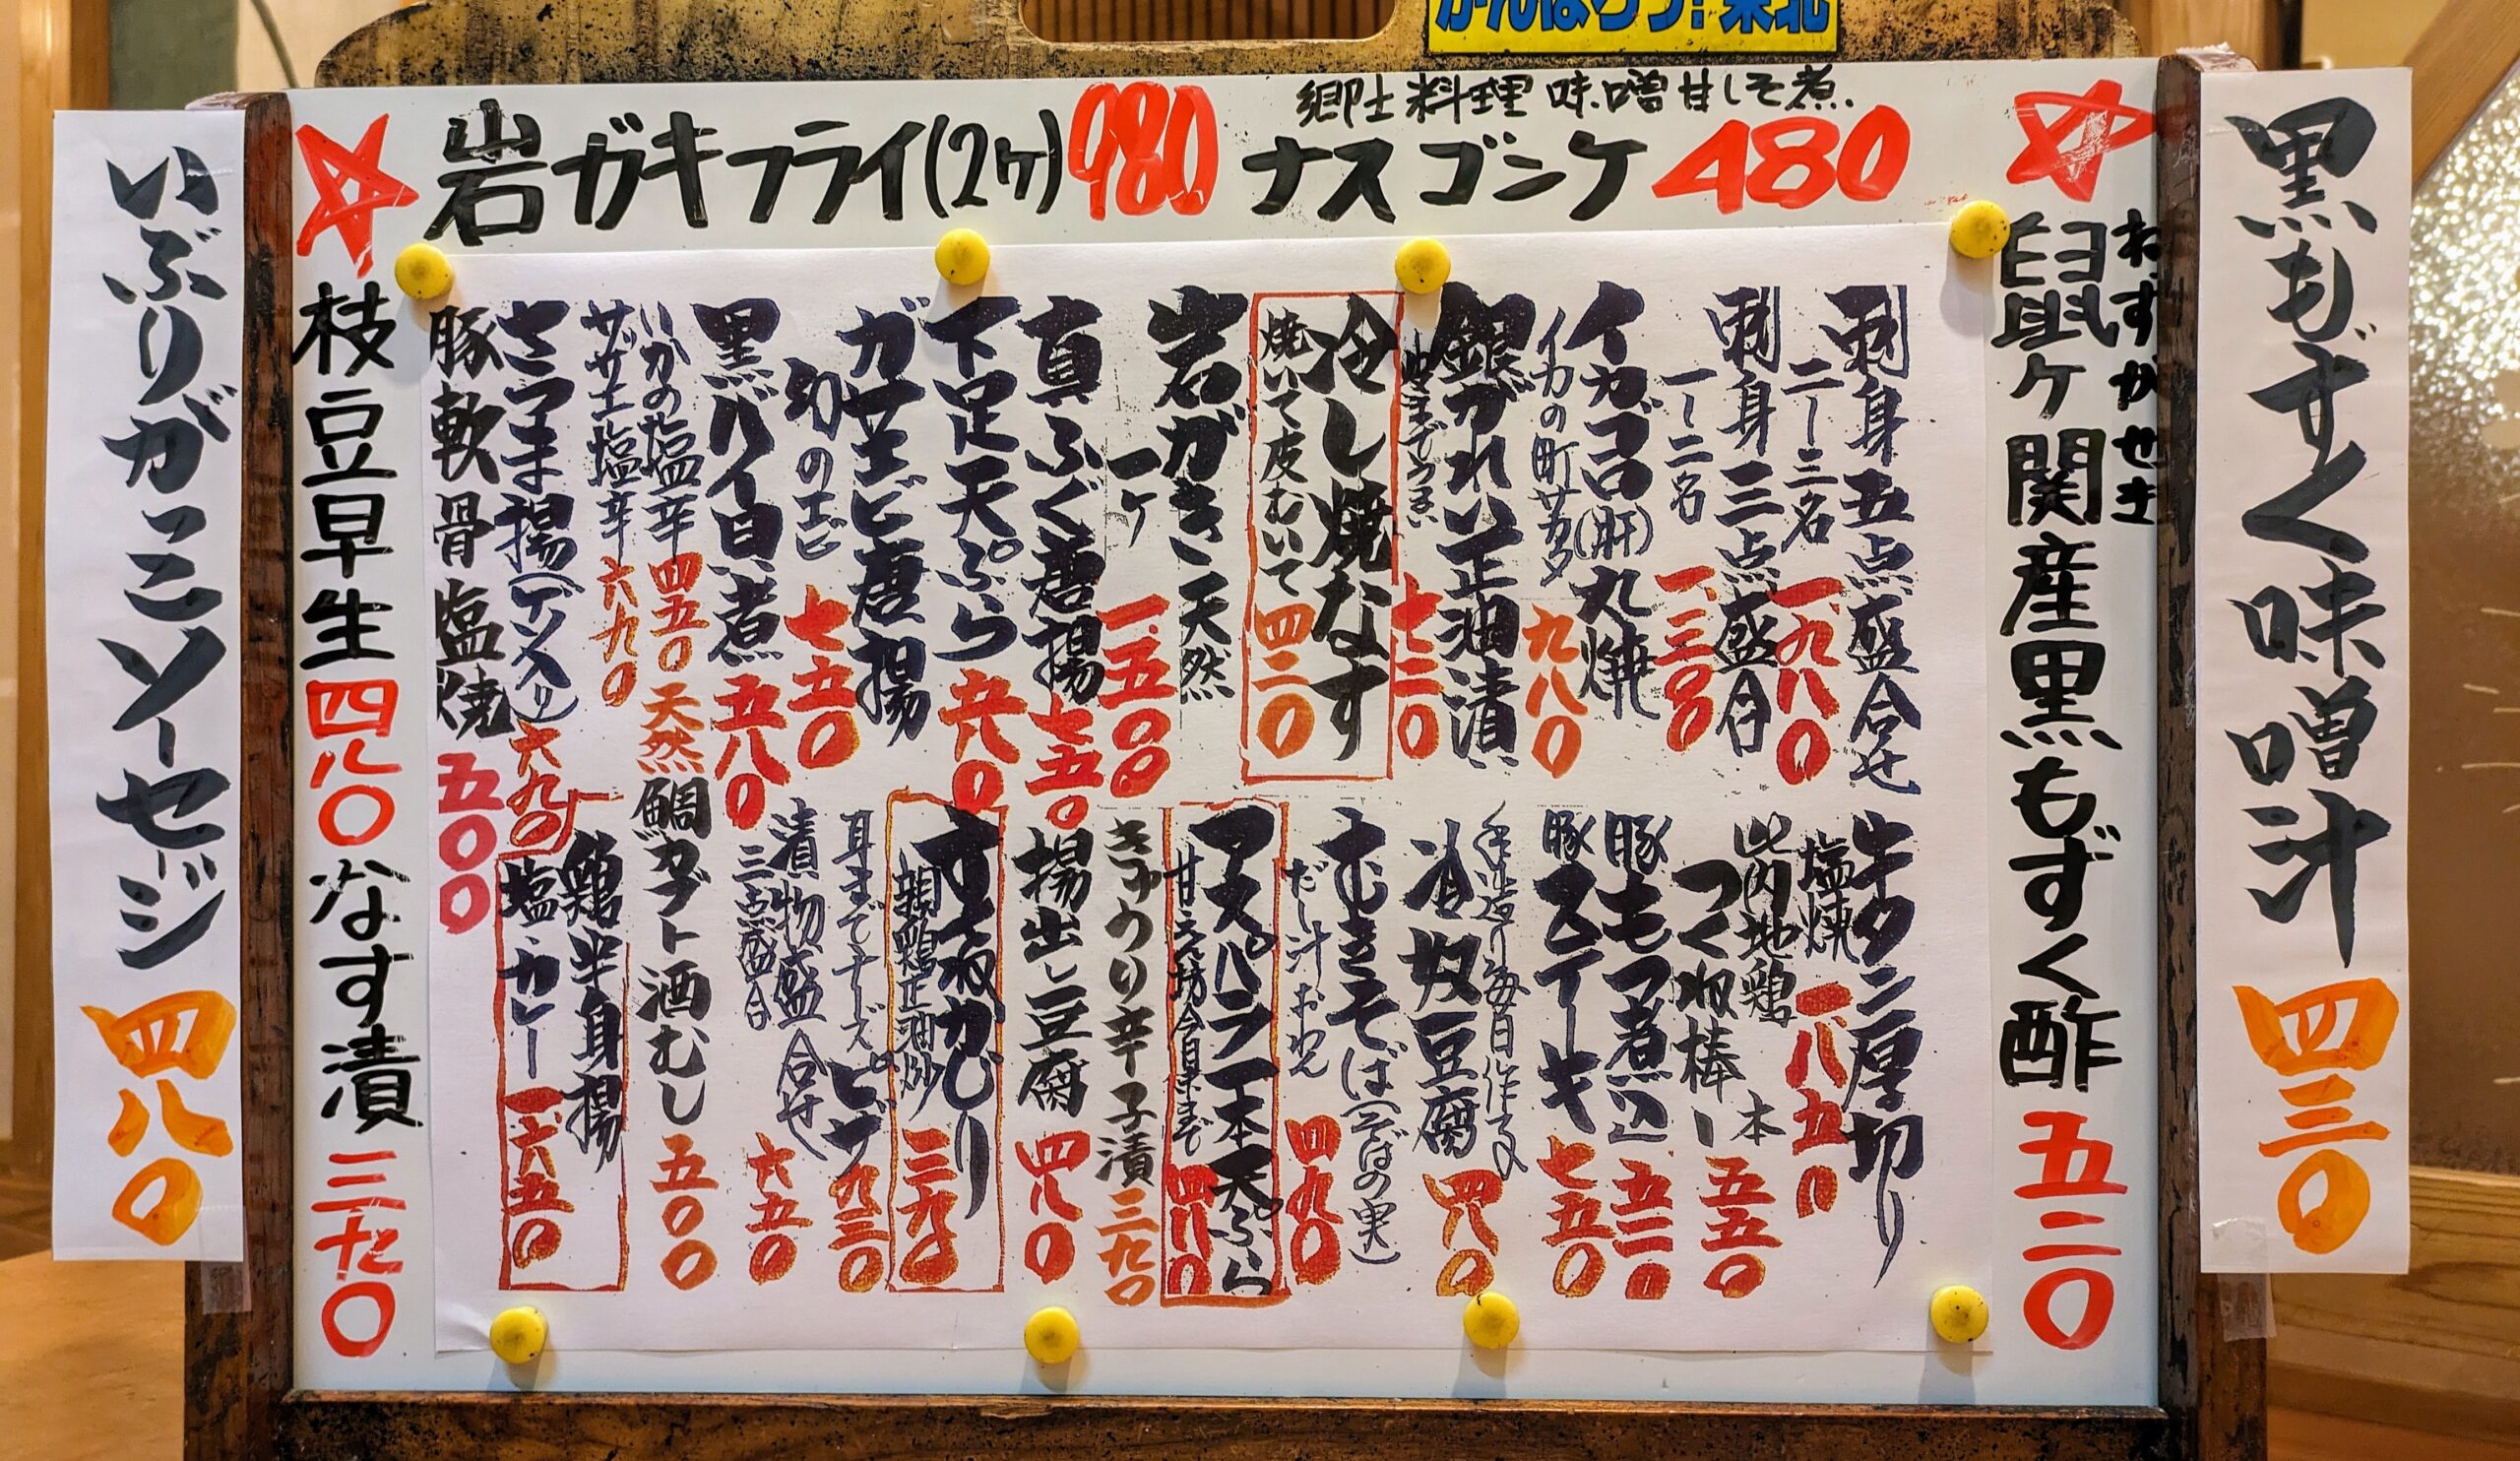 がんばろう!東北
岩ガキフライ(2ヶ)980
郷土料理 味噌甘しそ煮.
ナスゴンケ 480
黒もずく味噌汁 四三〇
ねずがせき
鼠ヶ関産黒もずく酢 五二〇
刺身五点盛合せ
二〜三名 一、九八〇
刺身三点盛合
一〜二名 一、三〇〇
イカゴロ(肝)丸焼
イカの町サカタ 九八〇
銀がれい正油漬
七二〇
冷し焼なす
焼いて皮むいて 四二〇
岩がき 天然
一ヶ 一、五〇〇
真ふぐ唐揚 七五〇
下足天ぷら 六八〇
ガサエビ唐揚
幻のエビ 七五〇
黒バイ自煮 五八〇
いかの塩辛 四五〇
サザエ塩辛 六九〇
さつま揚(ゲソ入り) 六九〇
豚軟骨塩焼 五〇〇
牛タン厚切り
塩焼 一八五〇
比内地鶏
つくね棒 一本 五五〇
豚もつ煮込 五二〇
豚ステーキ 七五〇
手造り毎日作る
冷奴豆腐 四八〇
むきそば(そばの実)
だし汁おわん 四九〇
アスパラ一本天ぷら
四八〇
きゅうり辛子漬 三九〇
揚出し豆腐 四八〇
親鶏正油炒 三九〇
耳までチーズピザ 九三〇
漬物盛合せ
三点盛合 六五〇
天然 鯛カブト酒むし 五〇〇
鶏半身揚
塩・カレー 一、六五〇
枝豆早生 四八〇 小なす漬 三九〇
いぶりがこソーセージ 四八〇